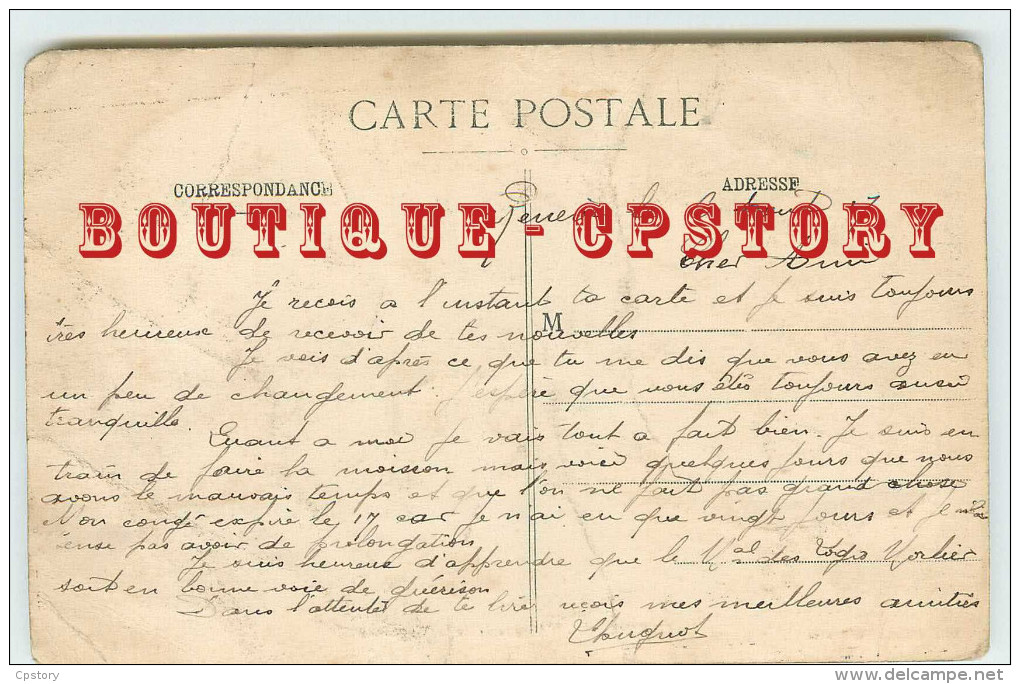 CARTE POSTALE
CORRESPONDANCE
ADRESSE
BOUTIQUE - CPSTORY
le
cher Ami
Je recois a l'instant ta carte et je suis toujours
très heureux de recevoir de tes nouvelles
M
Je vois d'après ce que tu me dis que vous avez eu
un peu de changement. J'espère que vous êtes toujours aussi
tranquille.
Quant a moi je vais tout a fait bien. Je suis en
train de faire la moisson mais voici quelques jours que nous
avons le mauvais temps et que l'on ne fait pas grand chose
Mon congé expire le 17 car je n'ai eu que vingt jours et je
pense pas avoir de prolongation
Je suis heureux d'apprendre que le Mal des Logis Morlier
soit en bonne voie de guérison
Dans l'attente de te lire reçois mes meilleures amitiés
Cpstory
www.delcampe.net